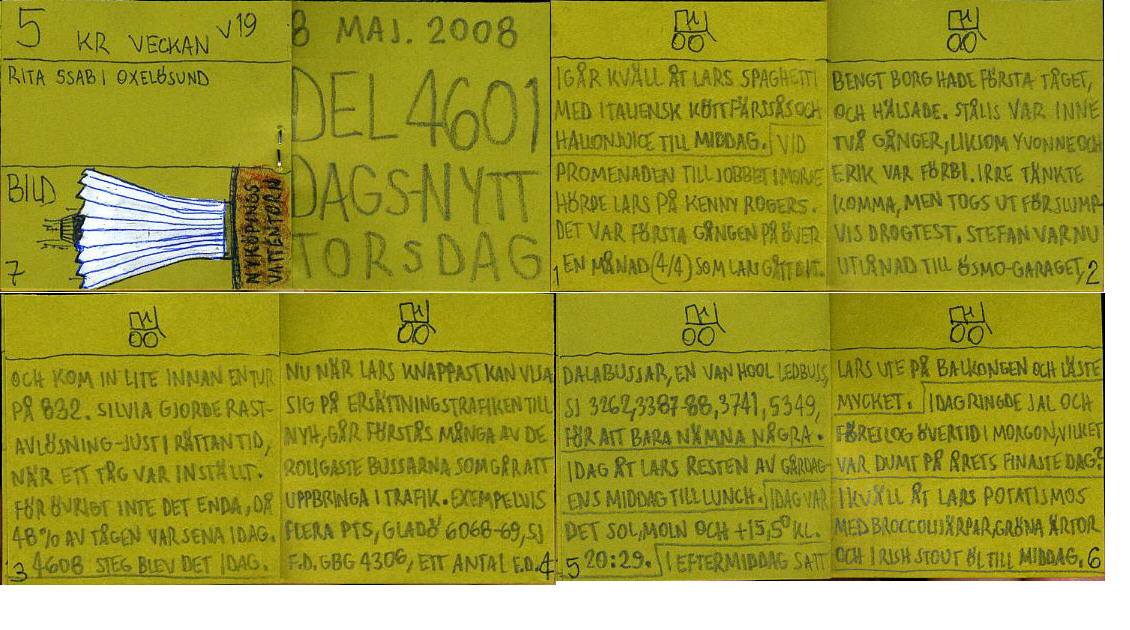 5 KR VECKAN V19
RITA SSAB I OXELÖSUND
BILD
NYKÖPINGS
VATTENTORN
7
8 MAJ. 2008
DEL 4601
DAGS-NYTT
TORSDAG
IGÅR KVÄLL ÅT LARS SPAGHETTI
MED ITALIENSK KÖTTFÄRSSÅS OCH
HALLONJUICE TILL MIDDAG. VID
PROMENADEN TILL JOBBET I MORSE
HÖRDE LARS PÅ KENNY ROGERS.
DET VAR FÖRSTA GÅNGEN PÅ ÖVER
1 EN MÅNAD (4/4) SOM LAN GÅTT DIT.
BENGT BORG HADE FÖRSTA TÅGET,
OCH HÄLSADE. STÅLIS VAR INNE
TVÅ GÅNGER, LIKSOM YVONNE OCH
ERIK VAR FÖRBI. IRRE TÄNKTE
KOMMA, MEN TOGS UT FÖR SLUMP-
VIS DROGTEST. STEFAN VAR NU
UTLÅNAD TILL ÖSMO-GARAGET, 2
OCH KOM IN LITE INNAN EN TUR
PÅ 832. SILVIA GJORDE RAST-
AVLÖSNING-JUST I RÄTTAN TID,
NÄR ETT TÅG VAR INSTÄLLT.
FÖR ÖVRIGT INTE DET ENDA, DÅ
48% AV TÅGEN VAR SENA IDAG.
3 4608 STEG BLEV DET IDAG.
NU NÄR LARS KNAPPAST KAN VISA
SIG PÅ ERSÄTTNINGSTRAFIKEN TILL
NYH, GÅR FÖRSTÅS MÅNGA AV DE
ROLIGASTE BUSSARNA SOM GÅR ATT
UPPBRINGA I TRAFIK. EXEMPELVIS
FLERA PTS, GLADÖ 6068-69, SJ
F.D. GBG 4306, ETT ANTAL F.D. 4
DALABUSSAR, EN VAN HOOL LEDBUSS,
SJ 3262, 3387-88, 3741, 5349,
FÖR ATT BARA NÄMNA NÅGRA.
IDAG ÅT LARS RESTEN AV GÅRDAG-
ENS MIDDAG TILL LUNCH. IDAG VAR
DET SOL, MOLN OCH +15,5° KL.
5 20:29. I EFTERMIDDAG SATT
LARS UTE PÅ BALKONGEN OCH LÄSTE
MYCKET. IDAG RINGDE JAL OCH
FÖRESLOG ÖVERTID I MORGON, VILKET
VAR DUMT PÅ ÅRETS FINASTE DAG?
IKVÄLL ÅT LARS POTATISMOS
MED BROCCOLIJÄRPAR, GRÖNA ÄRTOR
OCH IRISH STOUT ÖL TILL MIDDAG. 6